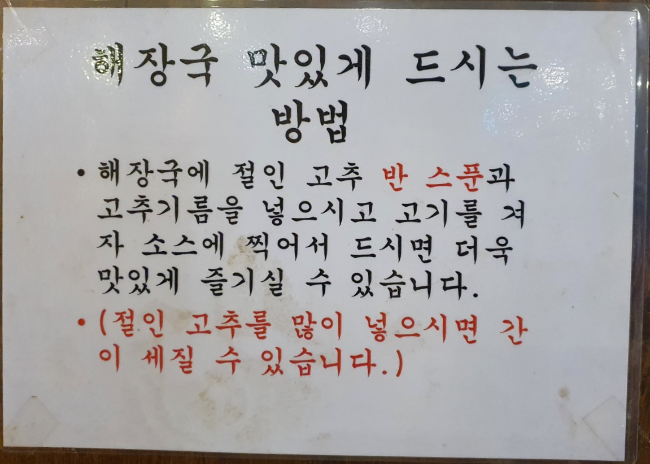 해장국 맛있게 드시는
방법
• 해장국에 절인 고추 반 스푼과
고추기름을 넣으시고 고기를 겨
자 소스에 찍어서 드시면 더욱
맛있게 즐기실 수 있습니다.
• (절인 고추를 많이 넣으시면 간
이 세질 수 있습니다.)